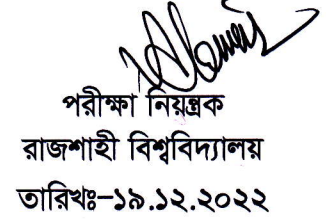 পরীক্ষা নিয়ন্ত্রক
রাজশাহী বিশ্ববিদ্যালয়
তারিখঃ-১৯.১২.২০২২